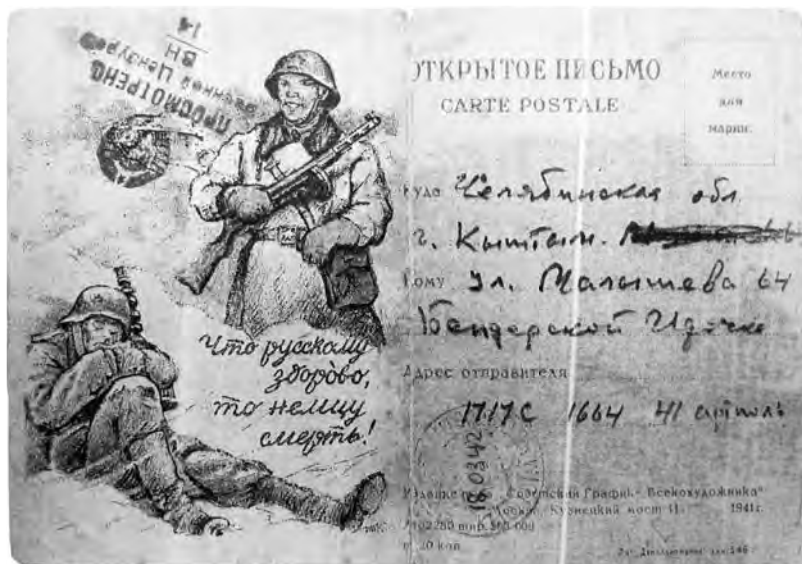 ПРОСМОТРЕНО
Военной Цензурой
ВН
Что русскому
здорово,
то немцу
смерть!
ОТКРЫТОЕ ПИСЬМО
CARTE POSTALE
Место
для
марки.
Куда Челябинская обл
г. Кыштым.
Кому Ул. Малышева 64
Бендерской Идочке
Адрес отправителя
1717С 1664 41
0342
Издание „Советский График“ Всекохудожника“
Москва, Кузнецкий мост 11. 1941г.
20 коп